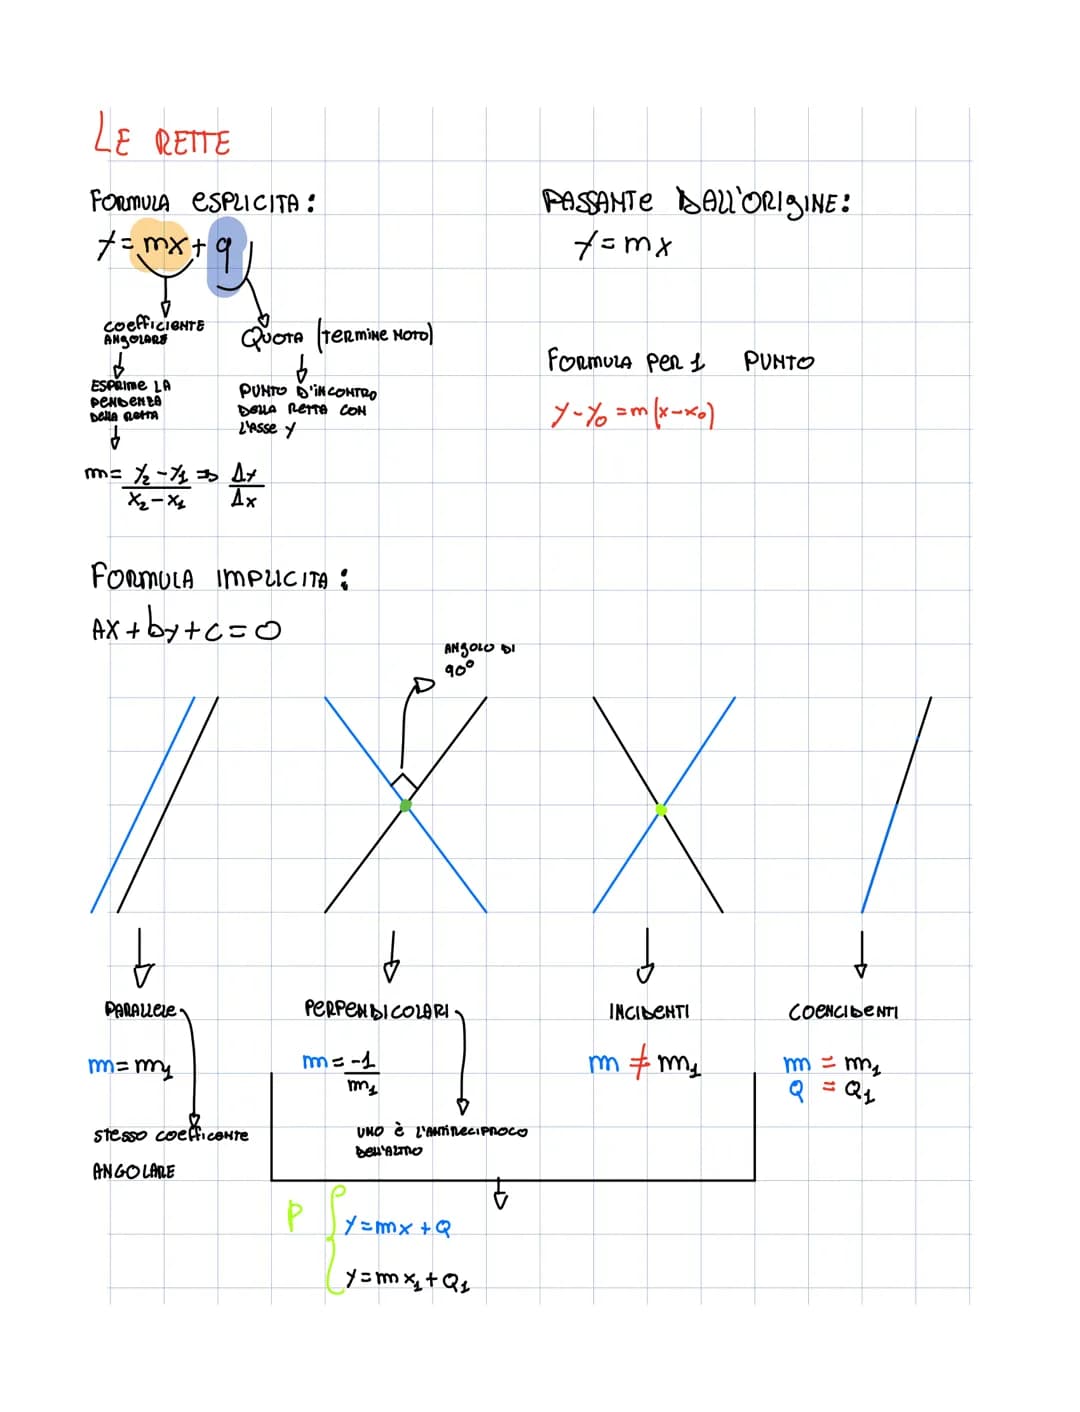 LE RETTE
FORMULA ESPLICITA:
y = mx + q
COEFFICIENTE
ANGOLARE
ESPRIME LA
PENDENZA
DELLA RETTA
m = y₂ - y₁ => Δy
x₂ - x₁ Δx
QUOTA (TERMINE NOTO)
PUNTO D'INCONTRO
DELLA RETTA CON
L'ASSE Y
PASSANTE DALL'ORIGINE:
y = mx
FORMULA PER 1 PUNTO
y - y₀ = m(x - x₀)
FORMULA IMPLICITA:
AX + by + c = 0
ANGOLO DI
90°
PARALLELE
m = m₁
STESSO COEFFICENTE
ANGOLARE
PERPENDICOLARI
m = -1
m₁
UNO È L'ANTIRECIPROCO
DELL'ALTRO
INCIDENTI
m ≠ m₁
COENCIDENTI
m = m₁
Q = Q₁
P { y = mx + Q
y = mx₁ + Q₁